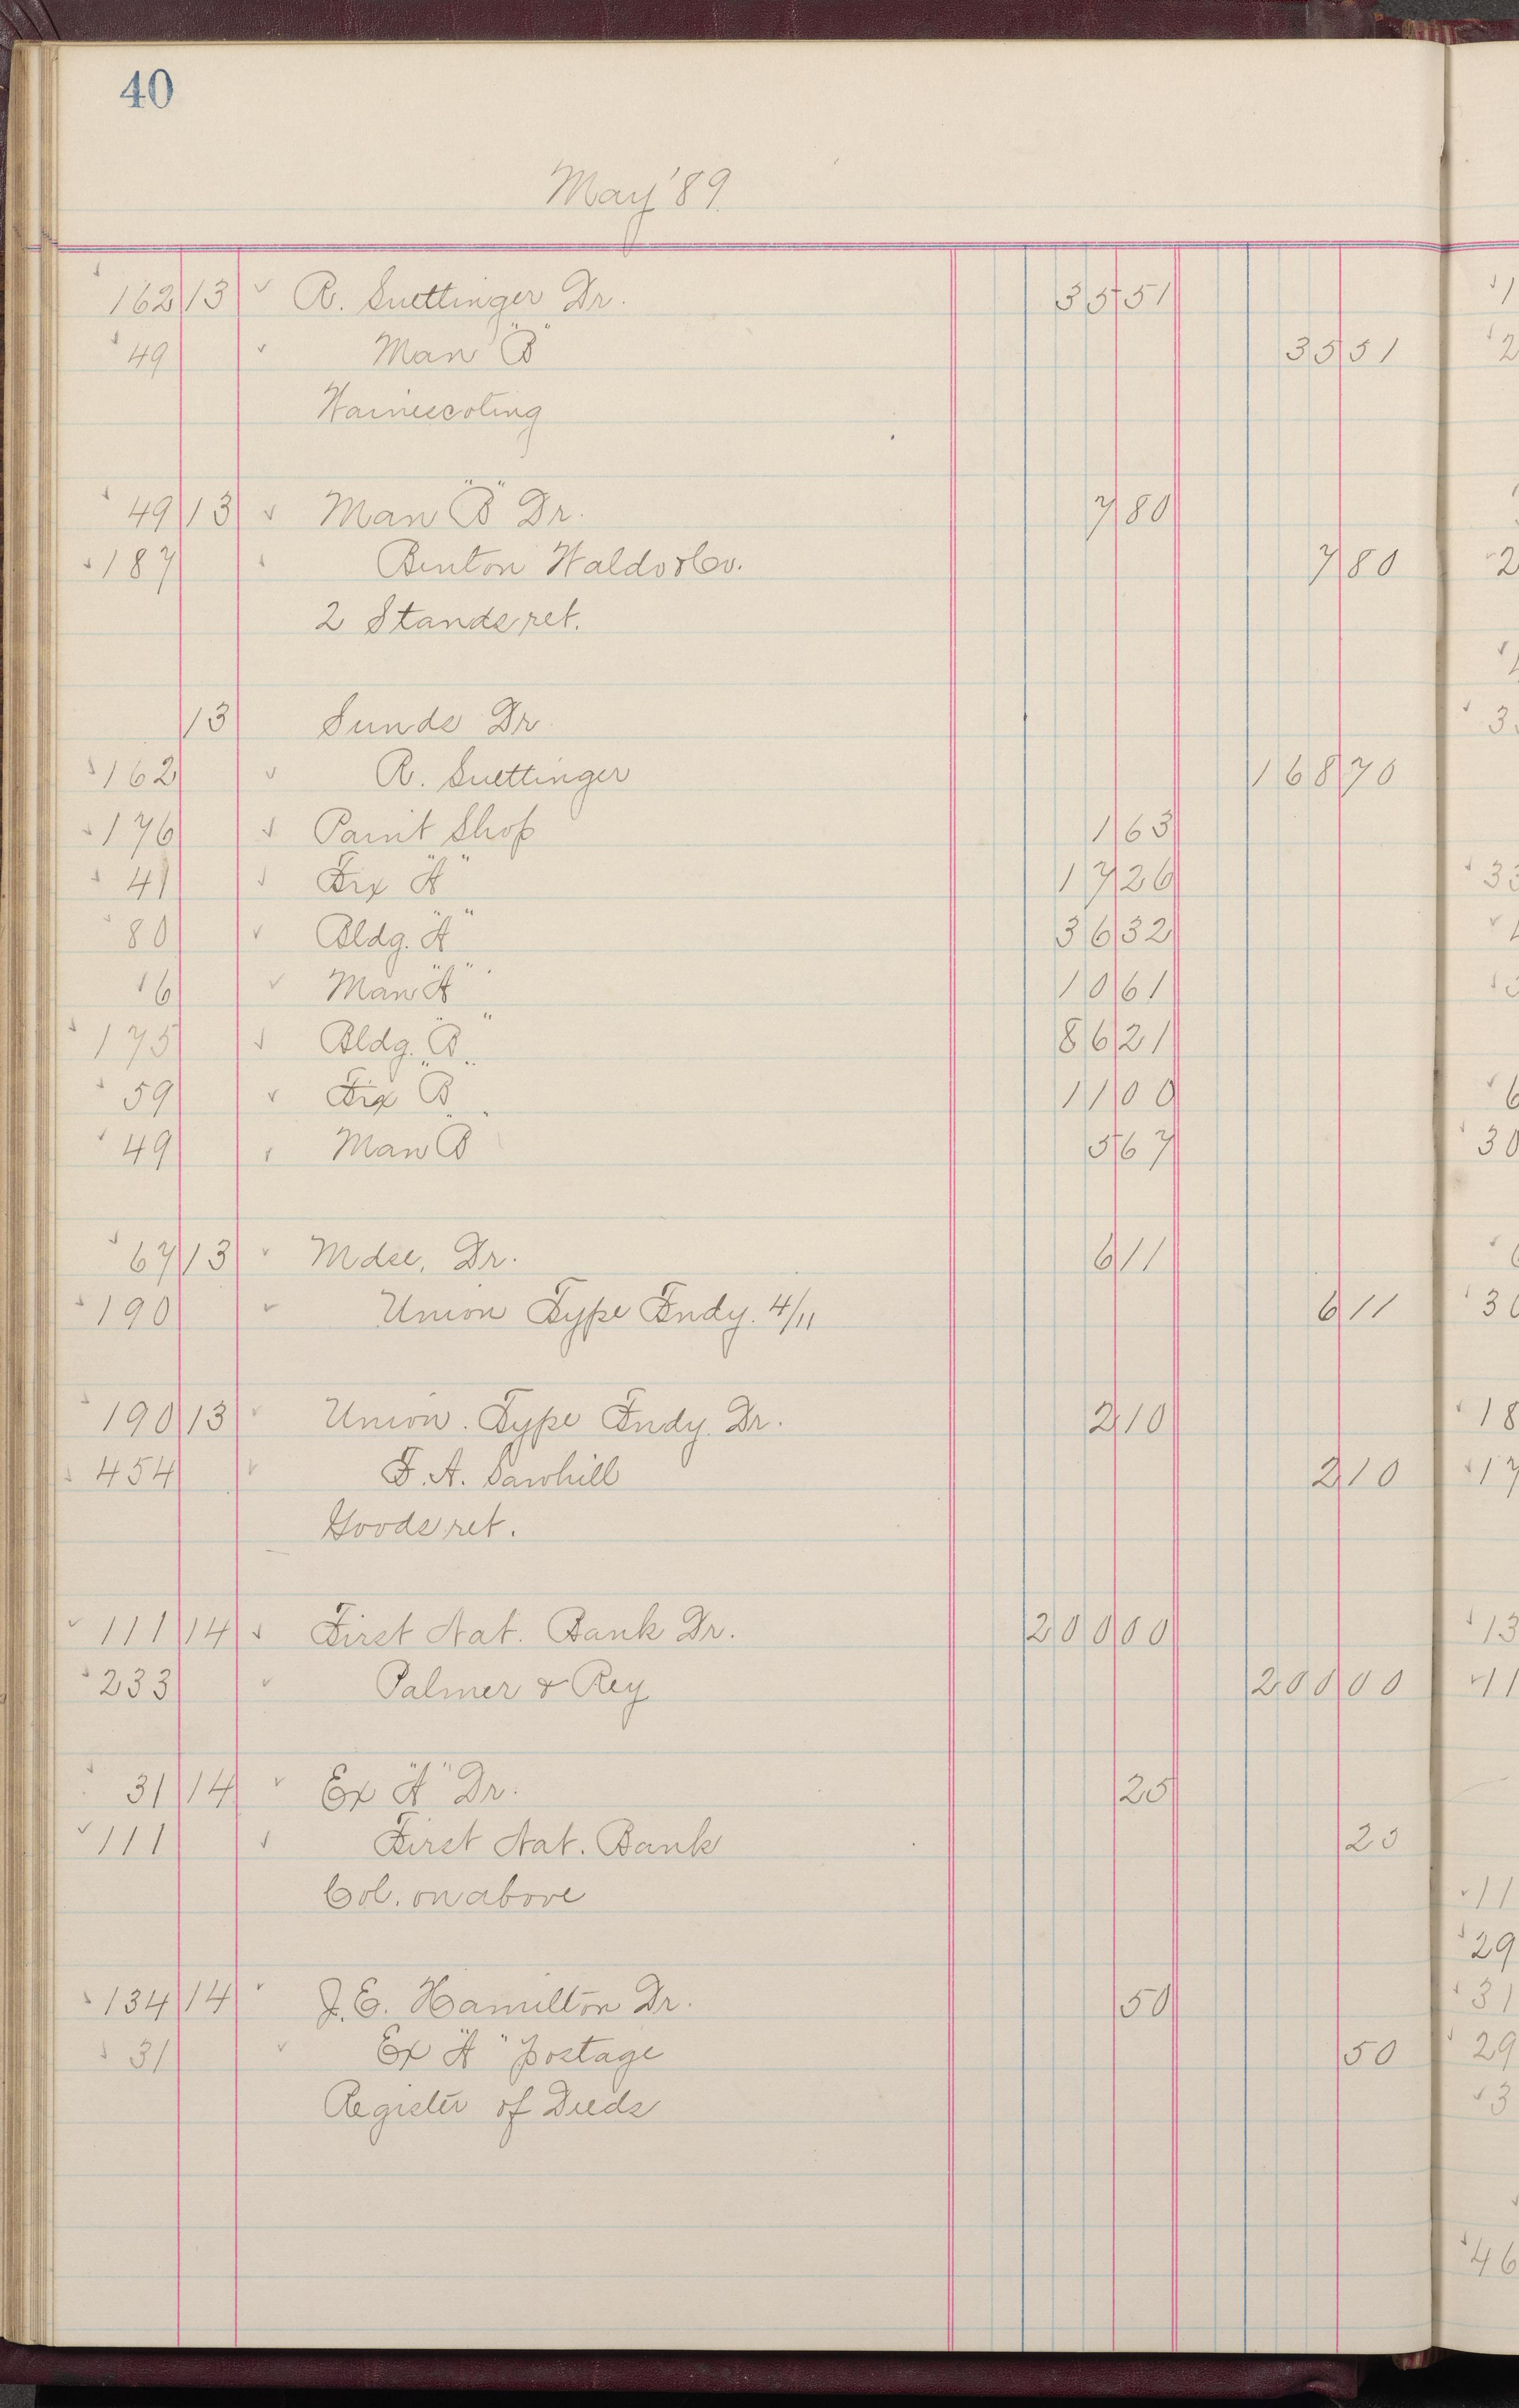 40
May '89
162 13 R. Suettinger Dr. 35 51
49 Man "B" 35 51
Wainscoting
49 13 Man "B" Dr. 7 80
187 Benton Waldo & Co. 7 80
2 Stands ret.
13 Sunds Dr
162 R. Suettinger 168 70
176 Paint Shop 1 63
41 Fix "A" 17 26
80 Bldg. "A" 36 32
16 Man "A" 10 61
175 Bldg. "B" 86 21
59 Fix "B" 11 00
49 Man "B" 5 67
67 13 Mdse. Dr. 6 11
190 Union Type Fndy. 4/11 6 11
190 13 Union. Type Fndy. Dr. 2 10
454 F. A. Sawhill 2 10
Goods ret.
111 14 First Nat. Bank Dr. 200 00
233 Palmer & Rey 200 00
31 14 Ex "A" Dr. 25
111 First Nat. Bank 25
Col. on above
134 14 J. E. Hamilton Dr. 50
31 Ex "A" postage 50
Register of Deeds